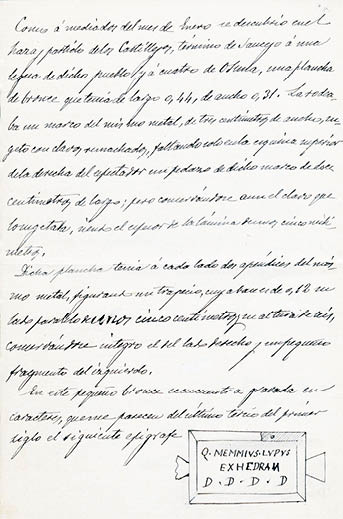 Como á mediados del mes de Enero se descubrió en el
haza, partido de los Castillejos, término de Saucejo á una
legua de dicho pueblo y á cuatro de Osuna, una plancha
de bronce que tenia de largo 0,44, de ancho 0,31. La rodea
ba un marco del mismo metal, de tres centimetros de ancho, su
geto con clavos remachados, faltando solo en la esquina superior
de la derecha del espectador un pedazo de dicho marco de doce
centimetros de largo; pero conservándose aun el clavo que
lo sugetaba, siendo el espesor de la lámina de unos cinco milí
metros.
Dicha plancha tenia á cada lado dos apéndices del mis
mo metal, figurando un trapecio, cuya base es de 0,12 su
lado paralelo de unos cinco centimetros, y su altura de seis,
conservándose integro el del lado derecho y un pequeño
fragmento del izquierdo.
En este pequeño bronce encuentra grabada en
caracteres, que me parecen del ultimo tercio del primer
siglo el siguiente epigrafe
Q. MEMMIVS. LVPVS
EXHEDRAM
D. D. D. D